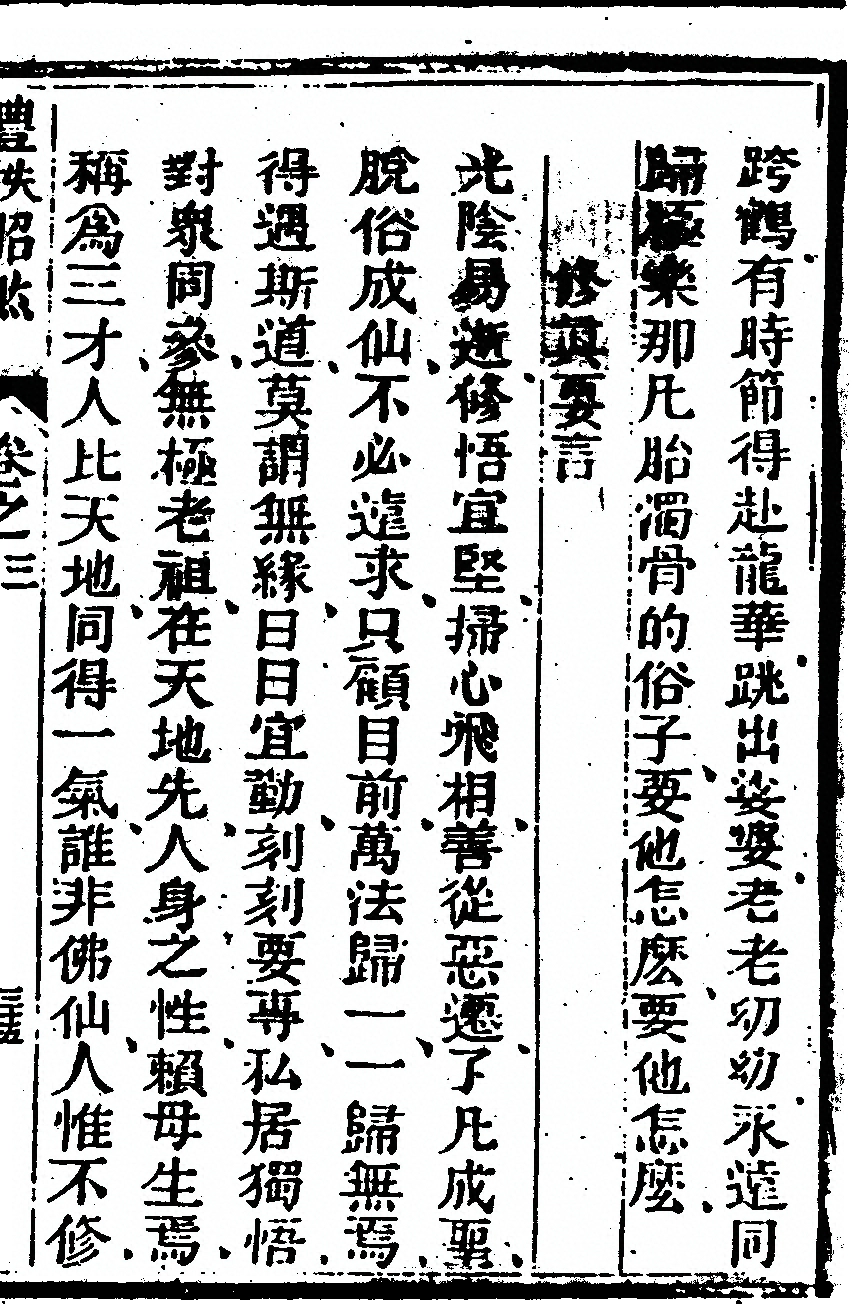 跨鶴有時節得赴龍華跳出娑婆老老幼幼永遠同
歸極樂那凡胎濁骨的俗子要他怎麽要他怎麽
修真要言
光陰易逝修悟宜堅掃心飛相善從惡遷了凡成聖
脫俗成仙不必遠求只顧目前萬法歸一一歸無焉
得遇斯道莫謂無緣日日宜勤刻刻要專私居獨悟
對衆同參無極老祖在天地先人身之性賴母生焉
稱爲三才人比天地同得一氣誰非佛仙人惟不修
卷之三